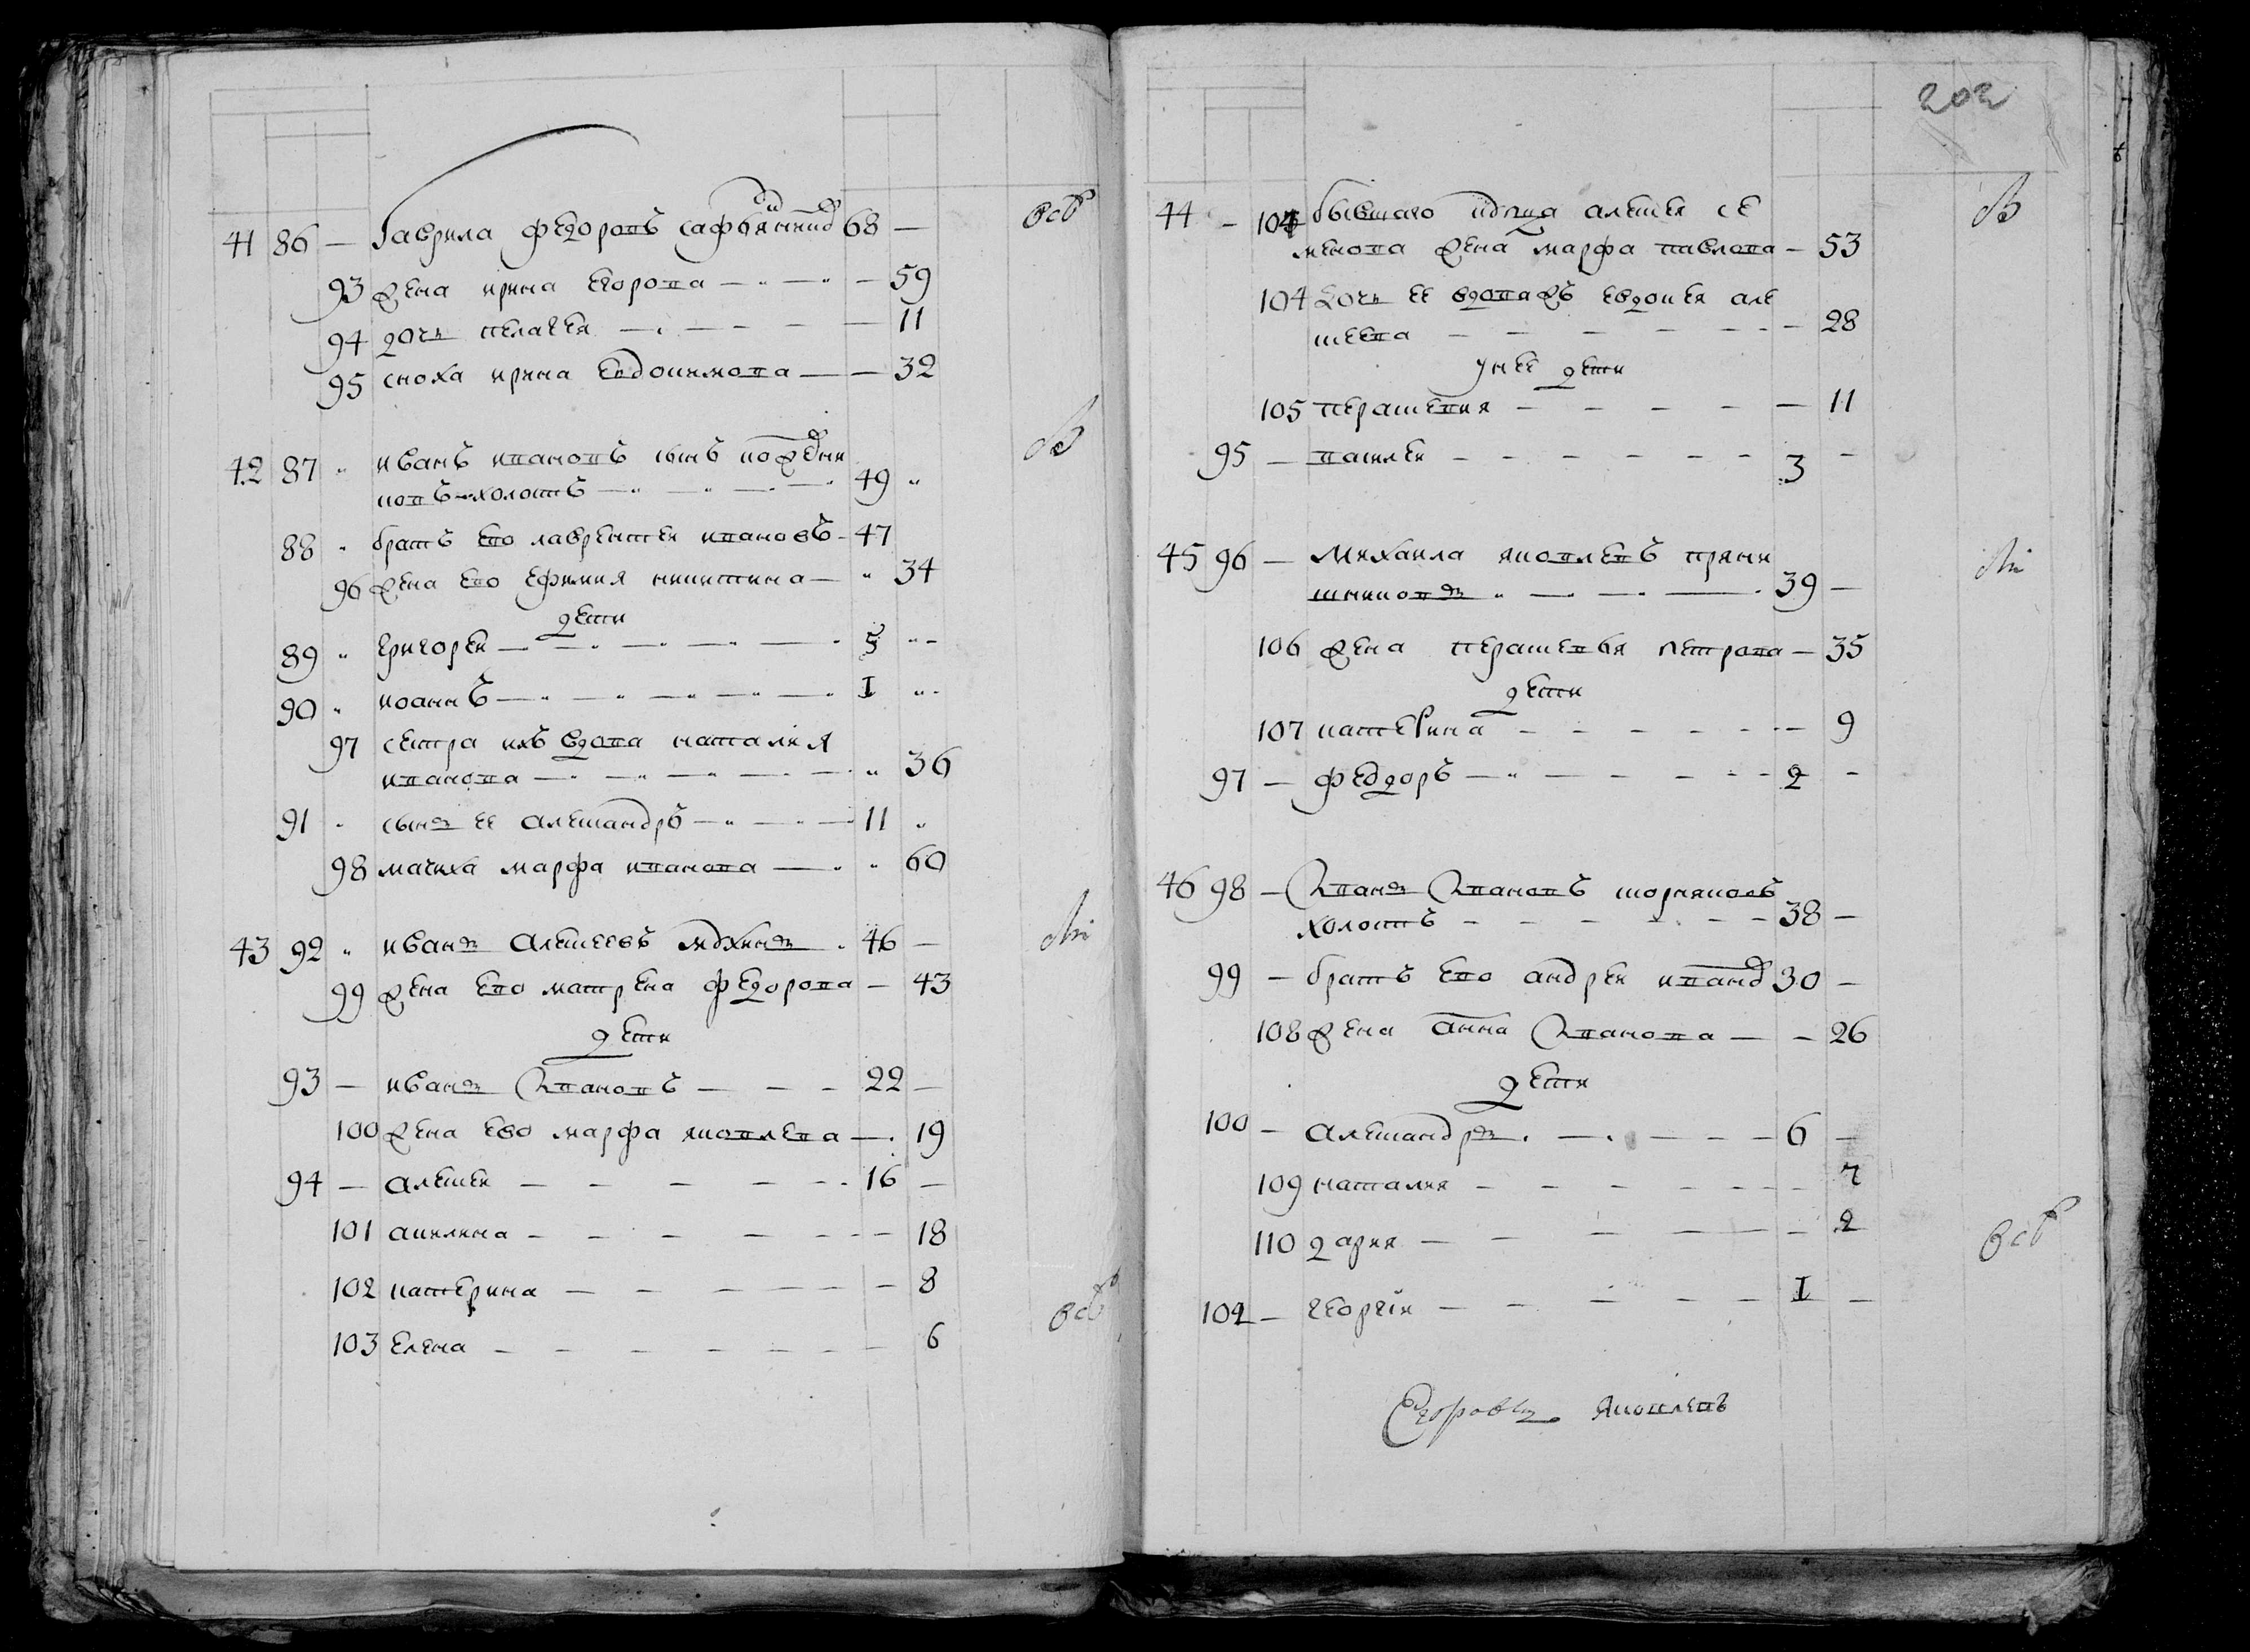 41 86 — Гаврила Федоровъ Сафьянникъ 68 —
93 жена ирина Егорова — 59
94 дочь пелагея — 11
95 сноха ирина Евдокимова — 32
42 87 " иванъ ивановъ сынъ
ковъ холостъ — 49 "
88 " братъ Ево лаврентей ивановъ — 47
96 жена Ево Ефимия никитина — " 34
дети
89 " Григорей — 5 "
90 " иоаннъ — I "
97 сестра ихъ вдова наталия
иванова — " 36
91 " сынъ ее александръ — 11 "
98 мачиха марфа иванова — " 60
43 92 " иванъ Алексеевъ мухинъ 46 —
99 жена Ево матрена Федорова — 43
дети
93 — иванъ Ивановъ — 22 —
100 жена Ево марфа яковлева — 19
94 — алексей — 16 —
101 акилина — 18
102 катерина — 8
103 Елена — 6
202
44 — 104 бывшаго купца алексея се
менова жена марфа павлова — 53
104 дочь ее вдова жъ евдокея але
ксеева — 28
у нее дети
105 перасковия — 11
95 — василей — 3 —
45 96 — Михаила яковлевъ пряни
шниковъ — 39 —
106 жена перасковья петрова — 35
дети
107 катерина — 9
97 — Федоръ — 2 —
46 98 — Иванъ Ивановъ
холостъ — 38 —
99 — братъ Ево андрей иванов 30 —
108 жена анна Иванова — 26
дети
100 — александръ — 6 —
109 наталия — 7
110 дария — 2
102 — георгiй — I —
Яковлевъ